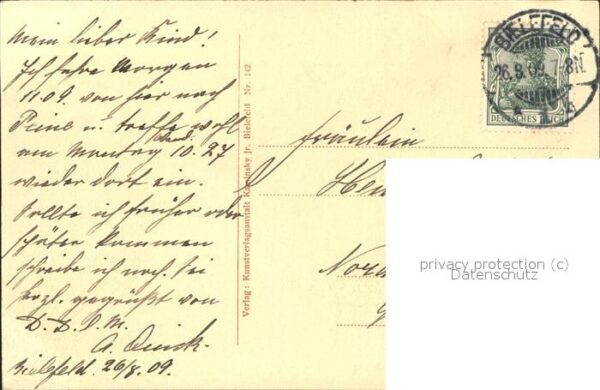 Mein lieber Kind!
Ich fahre Morgen
11.09. von hier nach
Peine u. treffe wohl
am Montag Abend 10.27
wieder dort ein.
Sollte ich früher oder
später kommen
schreibe ich noch. Sei
herzl. gegrüßt von
D. D. I. M.
A. Quick.
Bielefeld. 26/8. 09.
Verlag: Kunstverlagsanstalt Kaminsky jr. Bielefeld Nr. 142
BIELEFELD
26.8.09. 8-9N.
DEUTSCHES REICH
Fräulein
Hen
Nord
privacy protection (c)
Datenschutz